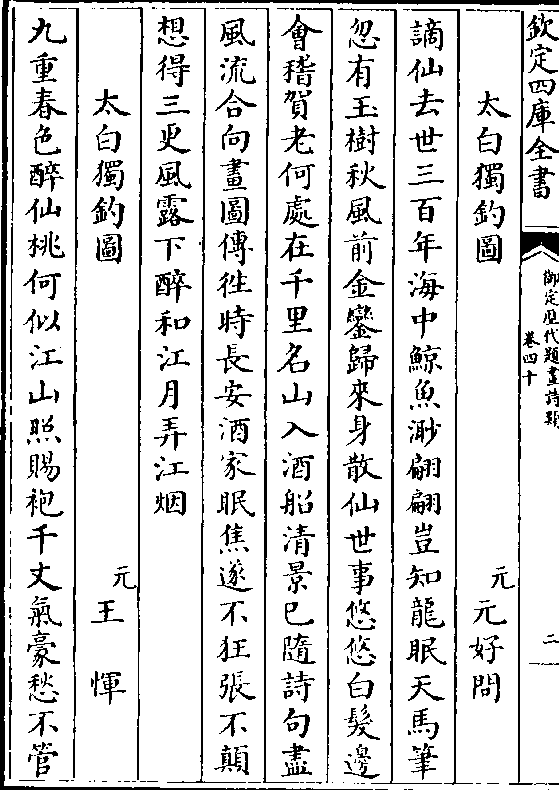 欽定四庫全書
御定歷代題畫詩類
卷四十
三
太白獨釣圖
元 元好問
謫仙去世三百年海中鯨魚渺翩翩豈知龍眠天馬筆
忽有玉樹秋風前金鑾歸來身散仙世事悠悠白髮邊
會稽賀老何處在千里名山入酒船清景已隨詩句盡
風流合向畫圖傳徃時長安酒家眠焦遂不狂張不顛
想得三更風露下醉和江月弄江烟
太白獨釣圖
元 王惲
九重春色醉仙桃何似江山照賜袍千丈氣豪愁不管